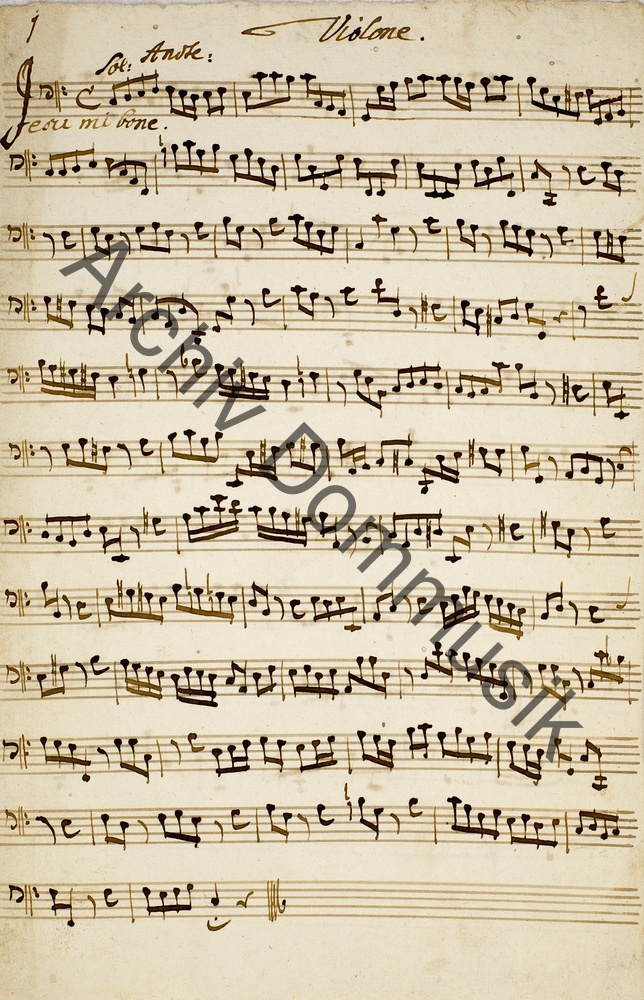 1 Violone.
Sol: Andte:
Jesu mi bone.
Archiv Dommusik